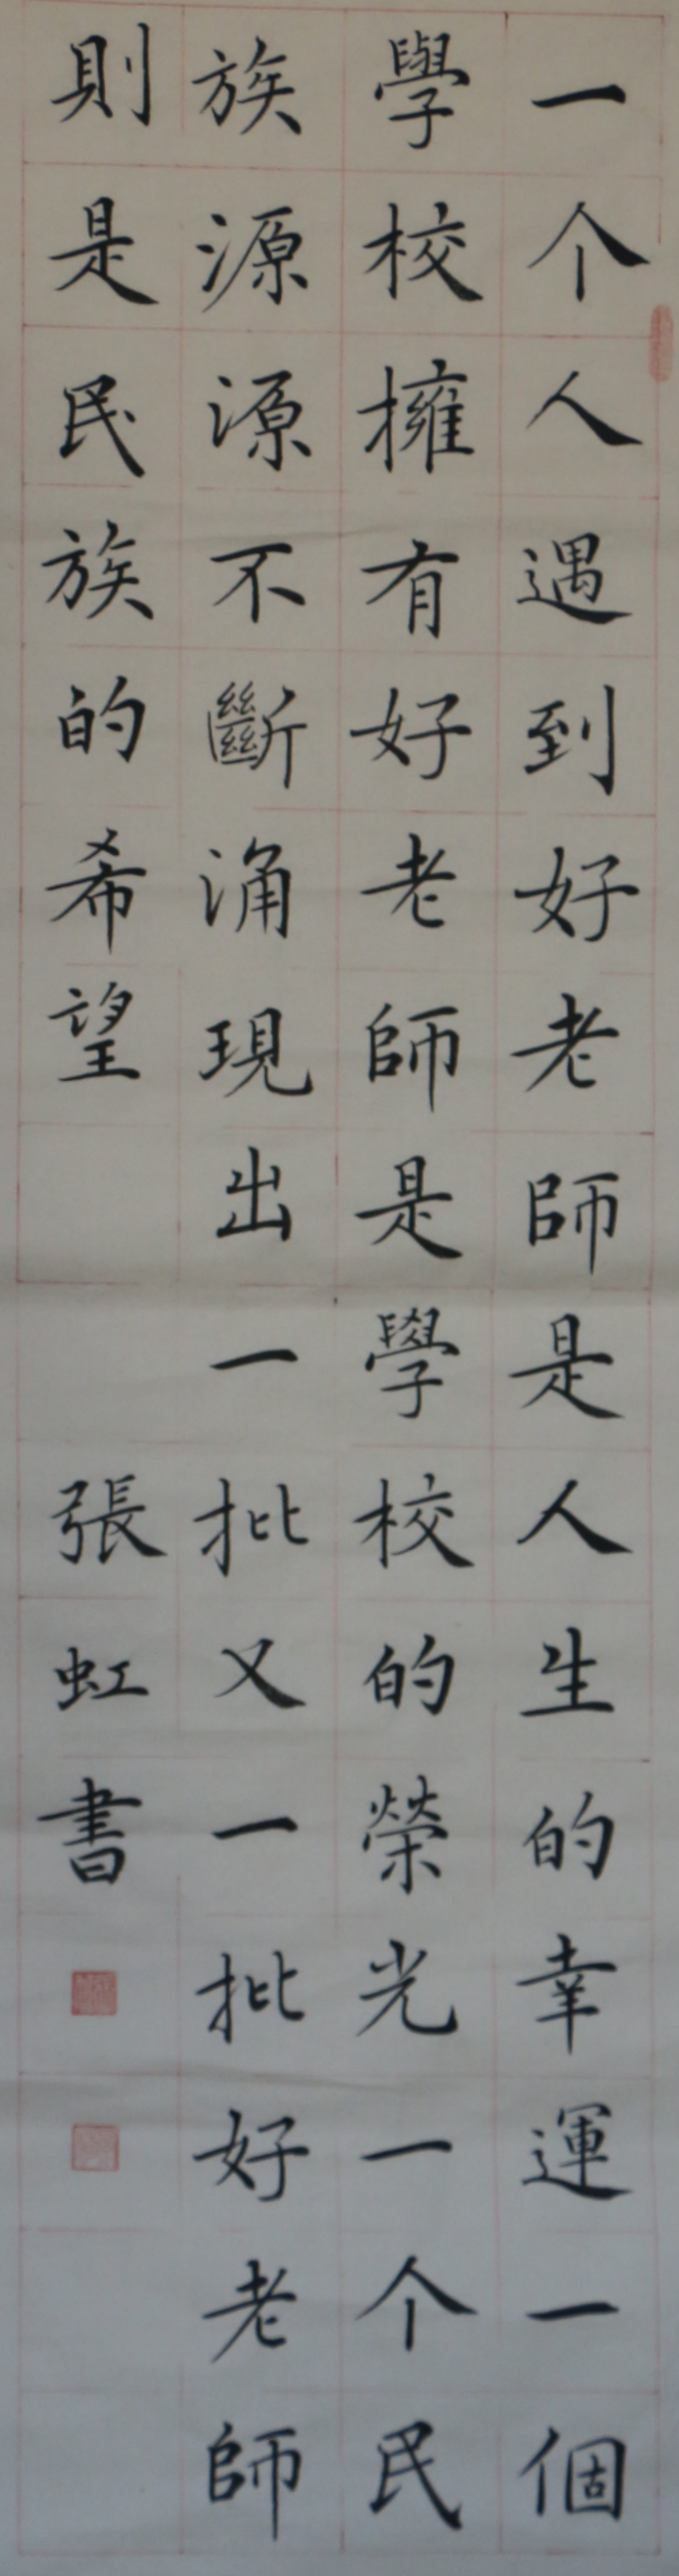 一个人遇到好老師是人生的幸運一個
學校擁有好老師是學校的榮光一个民
族源源不斷涌現出一批又一批好老師
則是民族的希望
張虹書